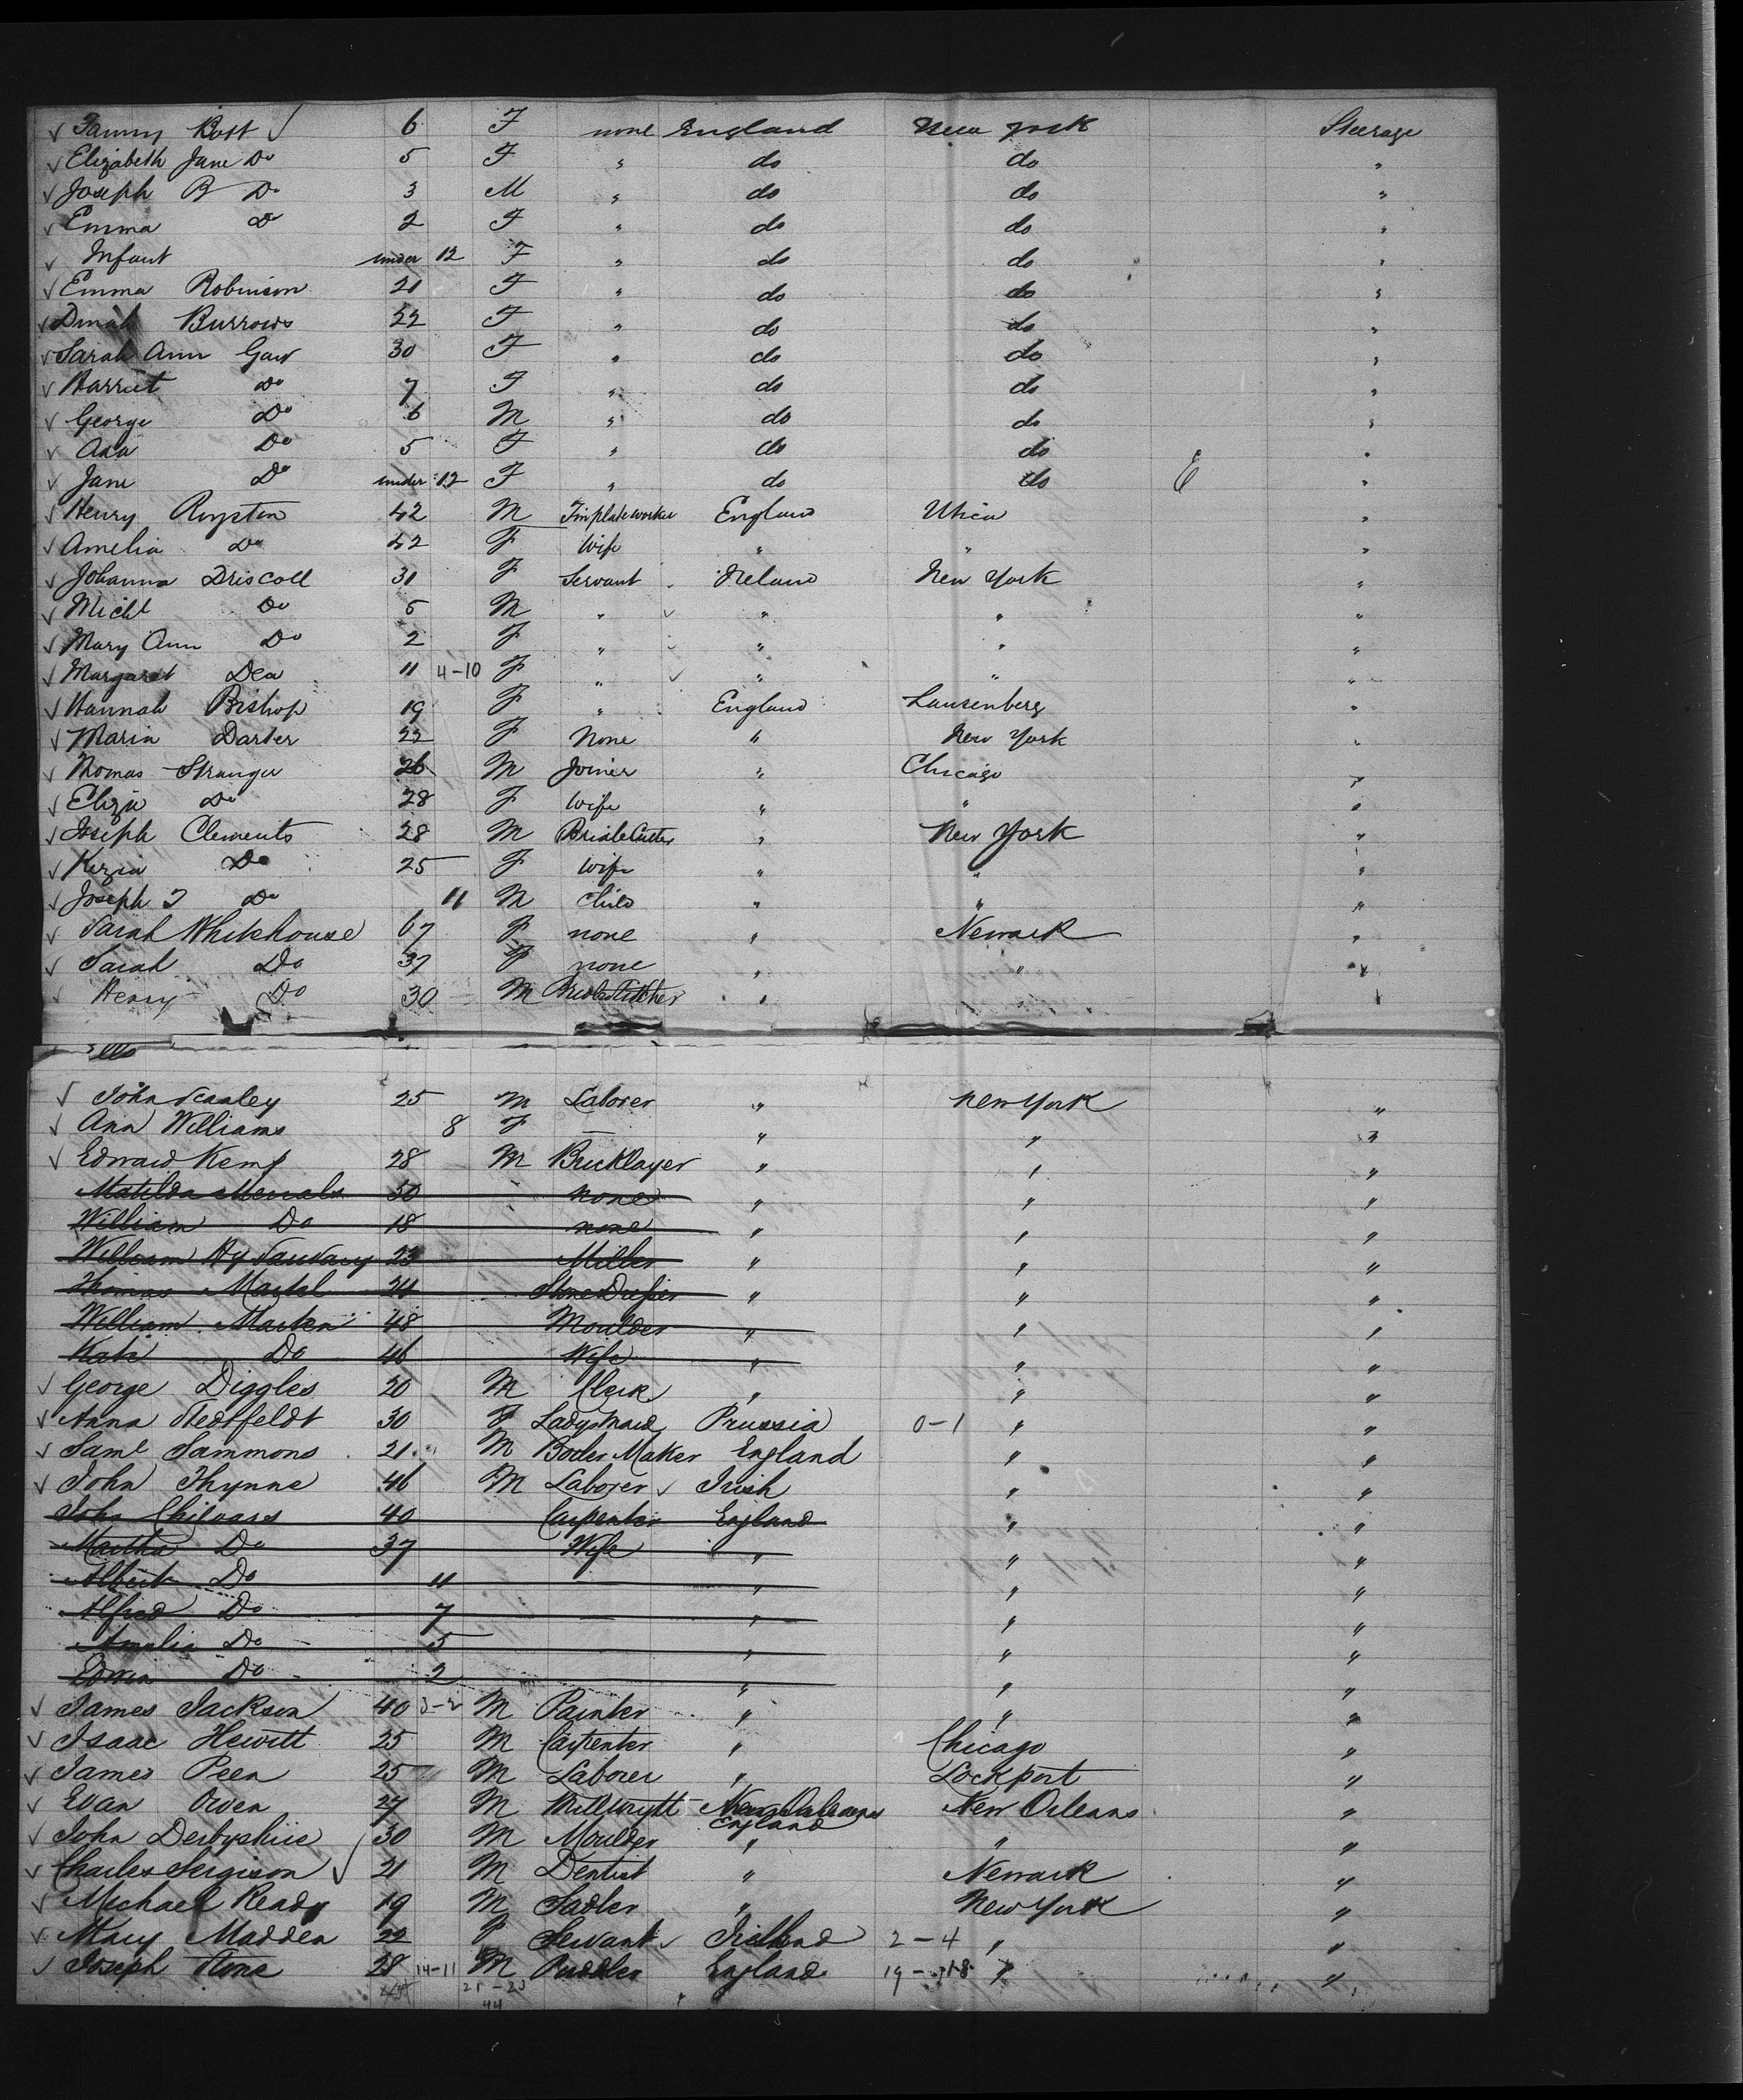 ✓ Fanny Bott ✓ 6 F none England New York Steerage
✓ Elizabeth Jane Do 5 F " do do "
✓ Joseph B Do 3 M " do do "
✓ Emma Do 2 F " do do "
✓ Infant under 12 F " do do "
✓ Emma Robinson 21 F " do do "
✓ Dinah Burrows 22 F " do do "
✓ Sarah Ann Gaw 30 F " do do "
✓ Harriet Do 7 F " do do "
✓ George Do 6 M " do do "
✓ Ada Do 5 F " do do "
✓ Jane Do under 12 F " do do "
✓ Henry Royston 42 M Tinplateworker England Utica "
✓ Amelia Do 42 F Wife " " "
✓ Johanna Driscoll 31 F Servant Ireland New York "
✓ Michl Do 5 M " ✓ " " "
✓ Mary Ann Do 2 F " " " "
✓ Margaret Dea 11 4-10 F " ✓ " " "
✓ Hannah Bishop 19 F " England Lansenberg "
✓ Maria Darter 22 F None " New York "
✓ Thomas Stranger 26 M Joiner " Chicago "
✓ Eliza Do 28 F Wife " " "
✓ Joseph Clements 28 M Bridle Cutter " New York "
✓ Kezia Do 25 F Wife " " "
✓ Joseph T Do 11 M Child " " "
✓ Sarah Whitehouse 67 F none " Newark "
✓ Sarah Do 37 F none " " "
Henry Do 30 M Bridle Stitcher " "
✓ John Scanley 25 M Laborer " New York "
✓ Ann Williams 8 F — " " "
✓ Edward Kemp 28 M Bricklayer " " "
Matilda Merrals 50 none " " "
William Do 18 none " " "
William Hy 23 Miller " " "
Thomas Martel 24 Stone Dresser " " "
William Marken 48 Moulder " " "
Kate Do 46 Wife " " "
✓ George Diggles 20 M Clerk " " "
✓ Anna Stedtfeldt 30 F Ladys Maid Prussia 0-1 " "
✓ Saml Sammons 21 M Boiler Maker England " "
✓ John Thynne 46 M Laborer ✓ Irish " "
John Chivars 40 Carpenter England " "
Martha Do 37 Wife " " "
Albert Do 11 " " "
Alfred Do 7 " " "
Amelia Do 5 " " "
Edwin Do 2 " " "
✓ James Jackson 40 M Painter " " "
✓ Isaac Hewitt 25 M Carpenter " Chicago "
✓ James Peen 25 M Laborer " Lockport "
✓ Evan Owen 27 M Millwrytt New Orleans New Orleans "
England
✓ John Derbyshire 30 M Moulder " " "
✓ Charles Sergison ✓ 21 M Dentist " Newark "
✓ Michael Ready 19 M Sadler " New York "
✓ Mary Madden 22 F Servant ✓ Irelland 2-4 " "
✓ Joseph Stone 28 14-11 M Puddler England 19-18 " "
44